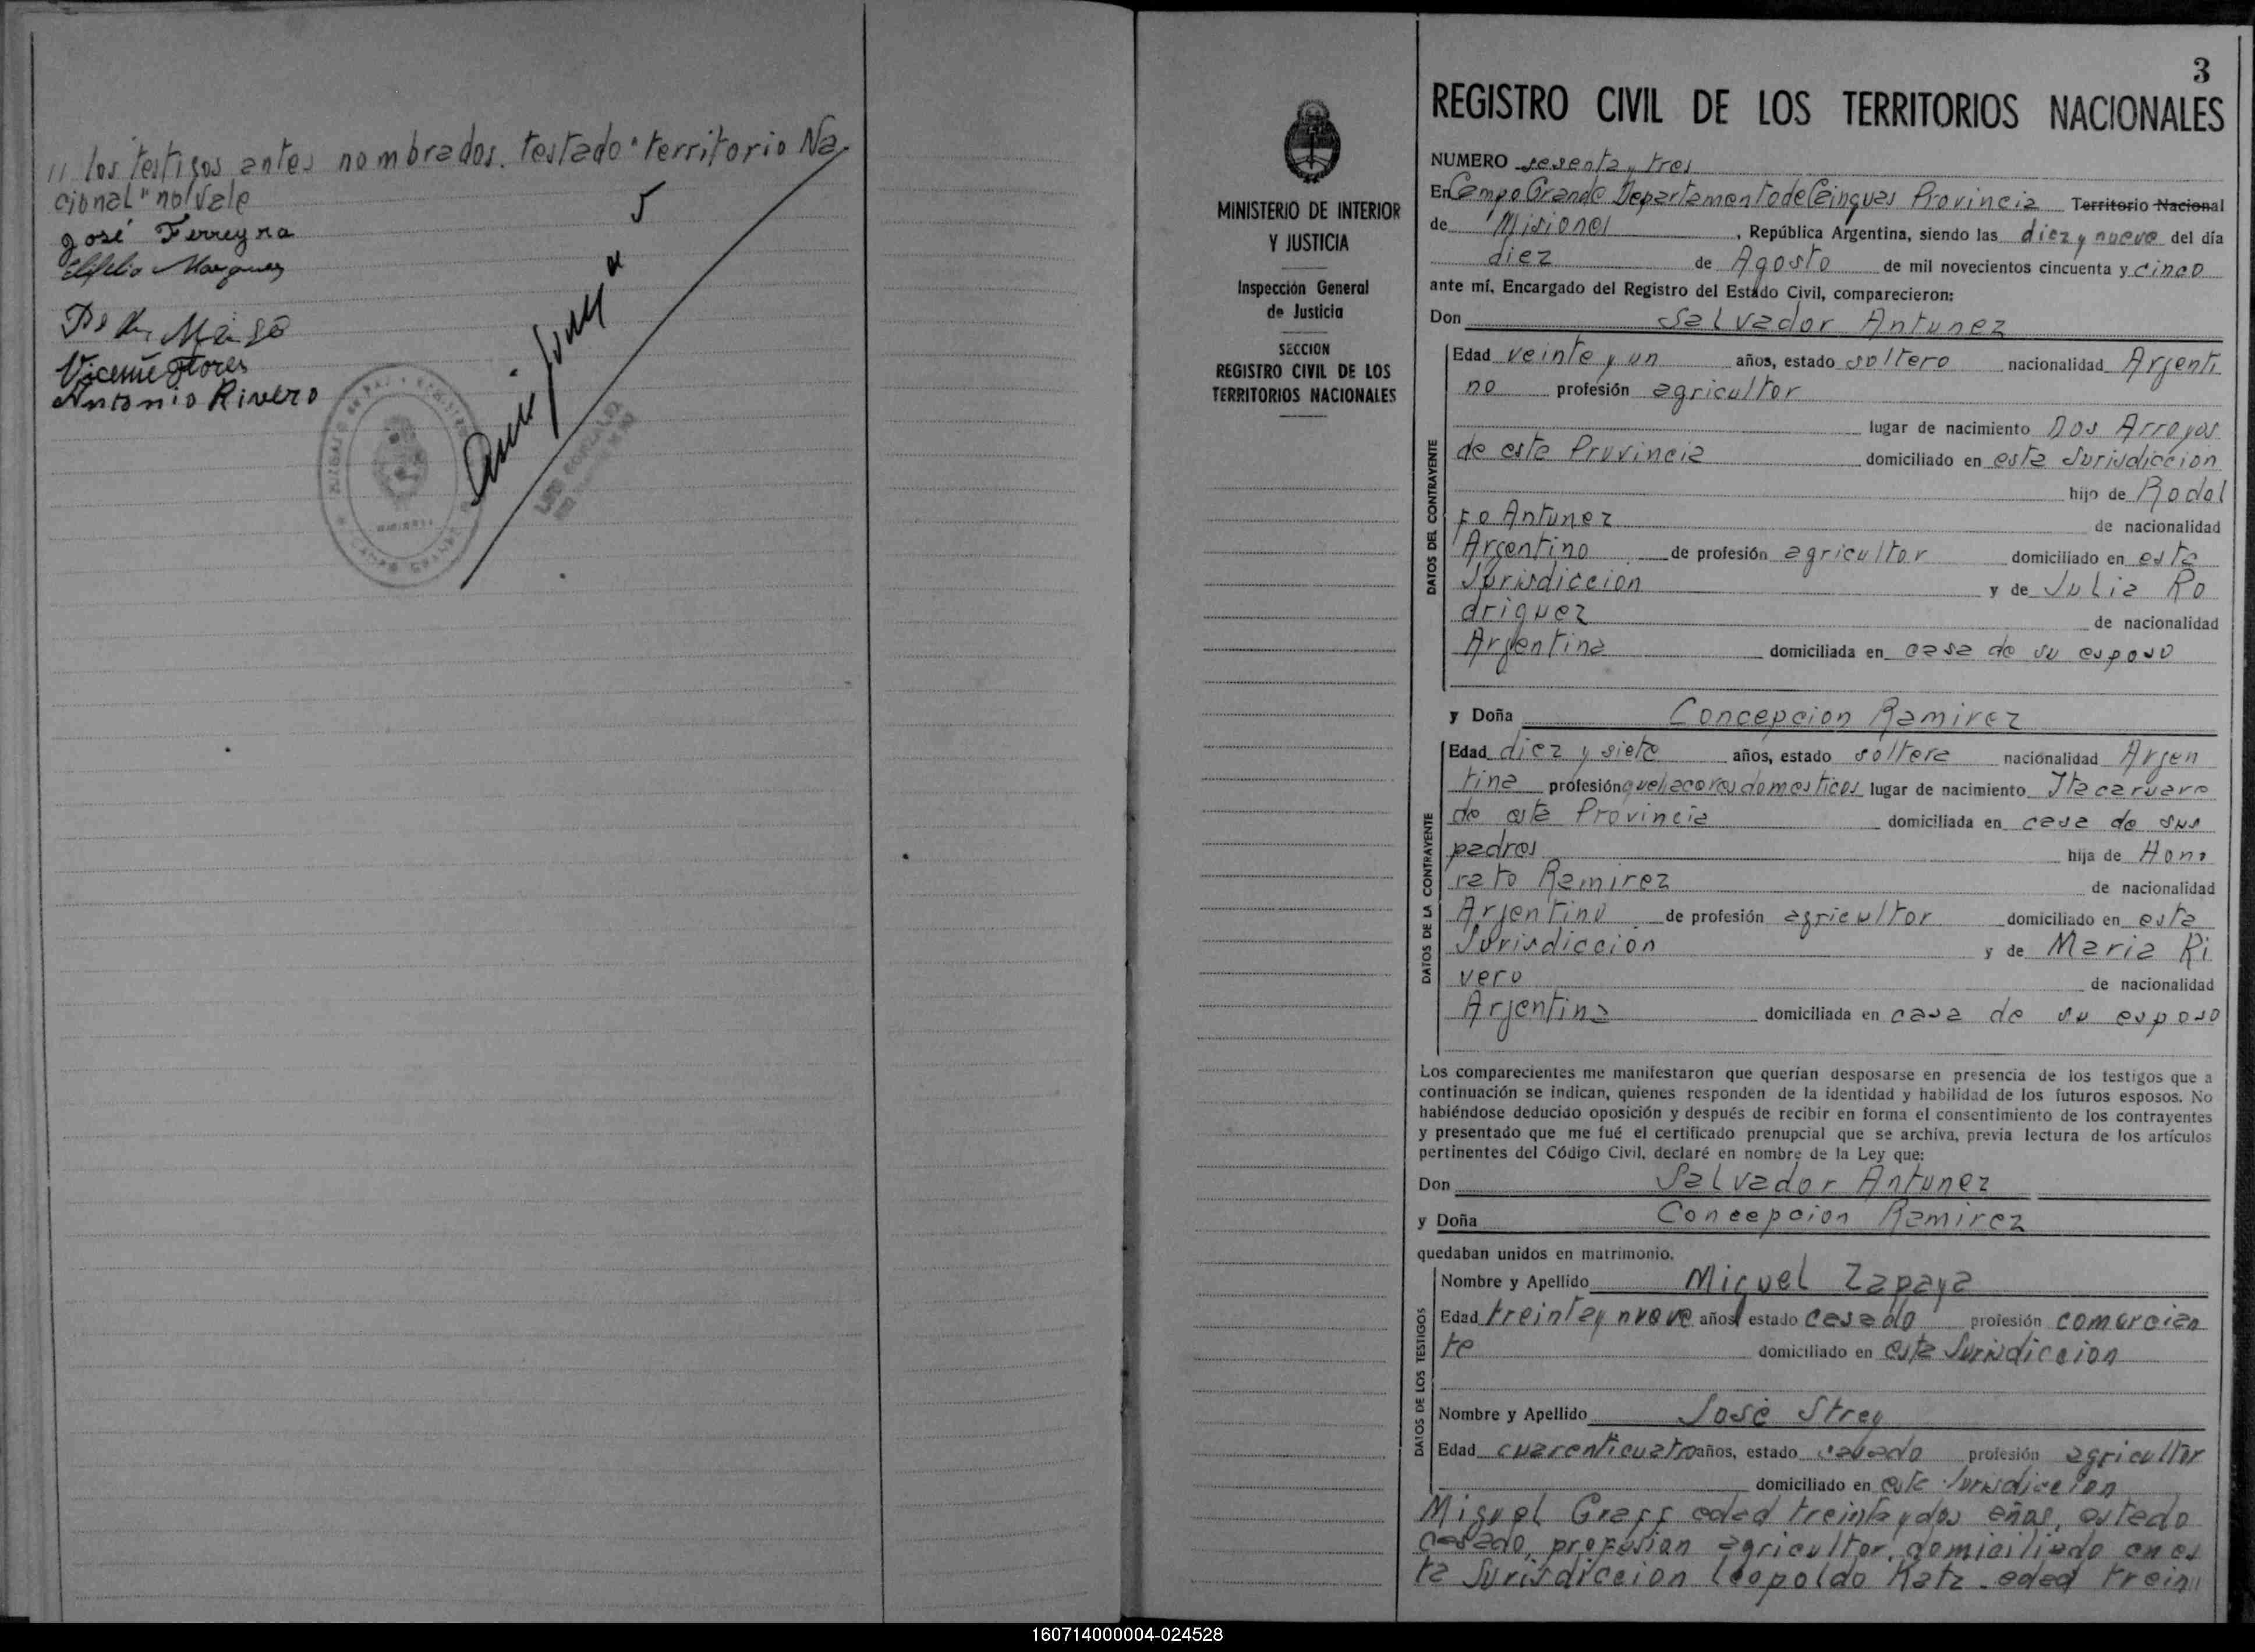 // los testigos antes nombrados. testado "territorio Na
cional" no vale
José Ferreyra
Marquez
Vicente Flores
Antonio Rivero
3
REGISTRO CIVIL DE LOS TERRITORIOS NACIONALES
MINISTERIO DE INTERIOR
Y JUSTICIA
Inspección General
de Justicia
SECCION
REGISTRO CIVIL DE LOS
TERRITORIOS NACIONALES
NUMERO sesenta y tres
En Campo Grande Departamento de Cainguas Provincia Territorio Nacional
de Misiones, República Argentina, siendo las diez y nueve del día
diez de Agosto de mil novecientos cincuenta y cinco
ante mí, Encargado del Registro del Estado Civil, comparecieron:
Don Salvador Antunez
DATOS DEL CONTRAYENTE
Edad veinte y un años, estado soltero nacionalidad Argenti
no profesión agricultor
lugar de nacimiento Dos Arroyos
de esta Provincia domiciliado en esta Jurisdiccion
hijo de Rodol
fo Antunez de nacionalidad
Argentino de profesión agricultor domiciliado en esta
Jurisdiccion y de Julia Ro
driguez de nacionalidad
Argentina domiciliada en casa de su esposo
y Doña Concepcion Ramirez
DATOS DE LA CONTRAYENTE
Edad diez y siete años, estado soltera nacionalidad Argen
tina profesión quehaceres domesticos lugar de nacimiento Itacaruare
de esta Provincia domiciliada en casa de sus
padres hija de Hono
rato Ramirez de nacionalidad
Argentino de profesión agricultor domiciliado en esta
Jurisdiccion y de Maria Ri
vero de nacionalidad
Argentina domiciliada en casa de su esposo
Los comparecientes me manifestaron que querían desposarse en presencia de los testigos que a
continuación se indican, quienes responden de la identidad y habilidad de los futuros esposos. No
habiéndose deducido oposición y después de recibir en forma el consentimiento de los contrayentes
y presentado que me fué el certificado prenupcial que se archiva, previa lectura de los artículos
pertinentes del Código Civil, declaré en nombre de la Ley que:
Don Salvador Antunez
y Doña Concepcion Ramirez
quedaban unidos en matrimonio.
DATOS DE LOS TESTIGOS
Nombre y Apellido Miguel Zapaya
Edad treinta y nueve años, estado casado profesión comercian
te domiciliado en esta Jurisdiccion
Nombre y Apellido José Strey
Edad cuarenticuatro años, estado casado profesión agricultor
domiciliado en esta Jurisdiccion
Miguel Graff edad treinta y dos años, estado
casado, profesion agricultor, domiciliado en es
ta Jurisdiccion Leopoldo Katz edad trein//
160714000004-024528